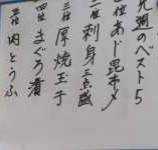 先週のベスト5
一位 あじ昆布〆
二位 刺身三点盛
三位 厚焼玉子
四位 まぐろ漬
五位 肉とうふ